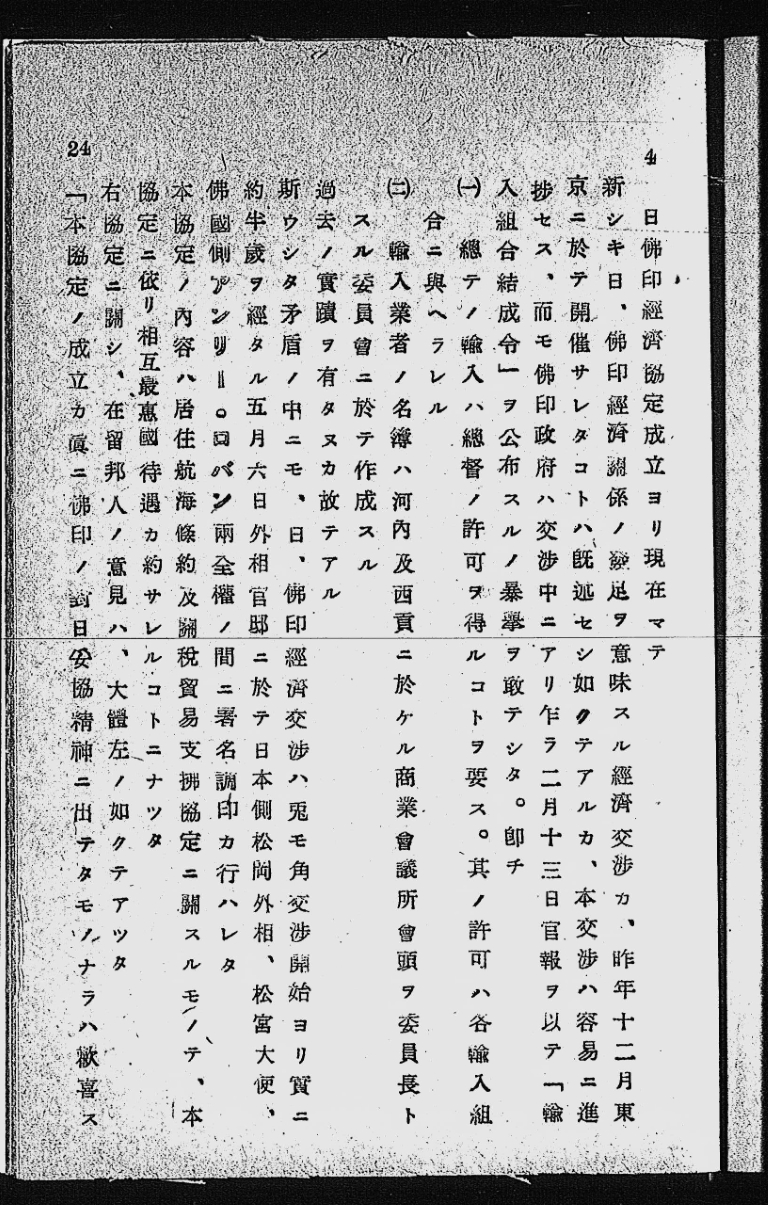 4　日佛印經濟協定成立ヨリ現在マテ
新シキ日、佛印經濟關係ノ發足ヲ意味スル經濟交渉カ、昨年十二月東
京ニ於テ開催サレタコトハ既述セシ如クテアルカ、本交渉ハ容易ニ進
捗セス、而モ佛印政府ハ交渉中ニアリ乍ラ二月十三日官報ヲ以テ「輸
入組合結成令」ヲ公布スルノ暴擧ヲ敢テシタ。卽チ
㈠　總テノ輸入ハ總督ノ許可ヲ得ルコトヲ要ス。其ノ許可ハ各輸入組
合ニ與ヘラレル
㈡　輸入業者ノ名簿ハ河內及西貢ニ於ケル商業會議所會頭ヲ委員長ト
スル委員會ニ於テ作成スル
過去ノ實蹟ヲ有タヌカ故テアル
斯ウシタ矛盾ノ中ニモ、日、佛印經濟交渉ハ兎モ角交渉開始ヨリ實ニ
約半歲ヲ經タル五月六日外相官邸ニ於テ日本側松岡外相、松宮大使、
佛國側アンリー。ロバン兩全權ノ間ニ署名調印カ行ハレタ
本協定ノ內容ハ居住航海條約及關稅貿易支拂協定ニ關スルモノテ、本
協定ニ依リ相互最惠國待遇カ約サレルコトニナツタ
右協定ニ關シ、在留邦人ノ意見ハ、大體左ノ如クテアツタ
「本協定ノ成立カ眞ニ佛印ノ對日妥協精神ニ出テタモノナラハ歡喜ス
24